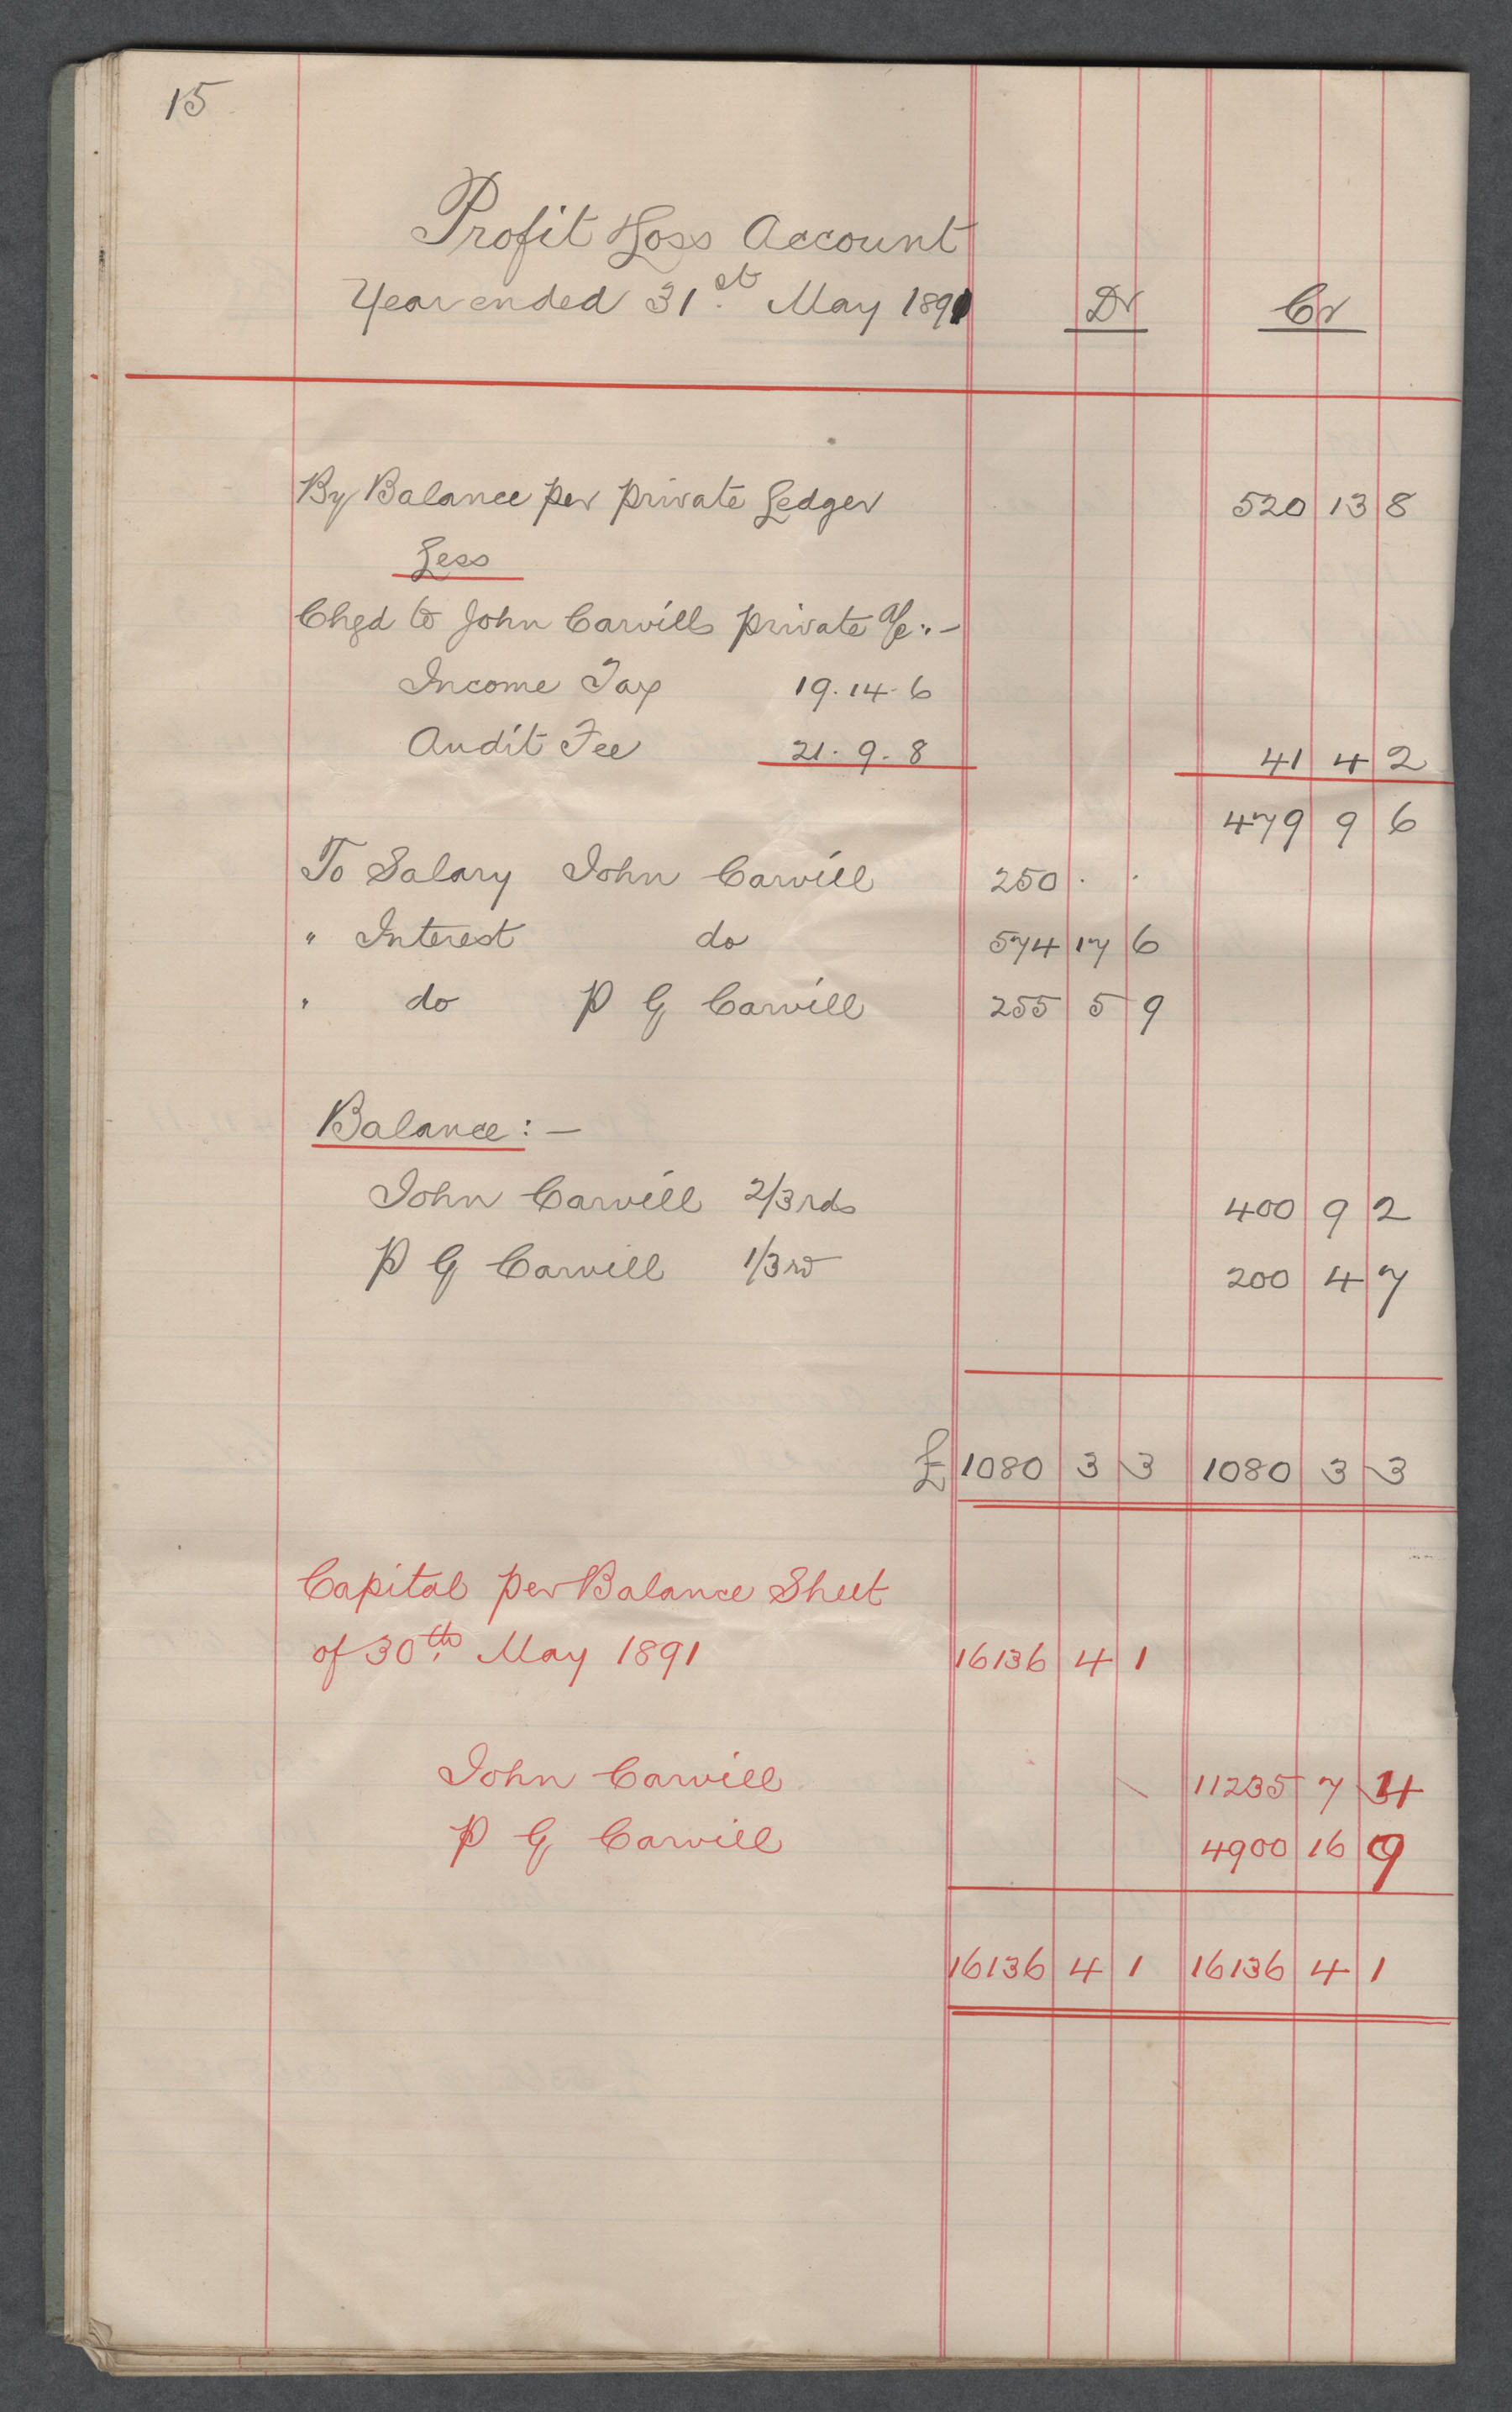 15
Profit & Loss Account
Year ended 31st May 1891 Dr Cr
By Balance per private Ledger 520 13 8
Less
Chgd to John Carvills private a/c :-
Income Tax 19.14.6
Audit Fee 21.9.8 41 4 2
479 9 6
To Salary John Carvill 250 . .
" Interest do 574 17 6
" do P G Carvill 255 5 9
Balance :-
John Carvill 2/3rds 400 9 2
P G Carvill 1/3rd 200 4 7
£ 1080 3 3 1080 3 3
Capital per Balance Sheet
of 30th May 1891 16136 4 1
John Carvill 11235 7 4
P G Carvill 4900 16 9
16136 4 1 16136 4 1